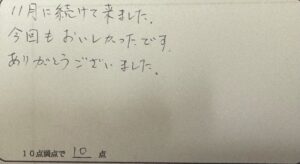 11月に続けて来ました。
今回もおいしかったです。
ありがとうございました。
10点満点で 10 点